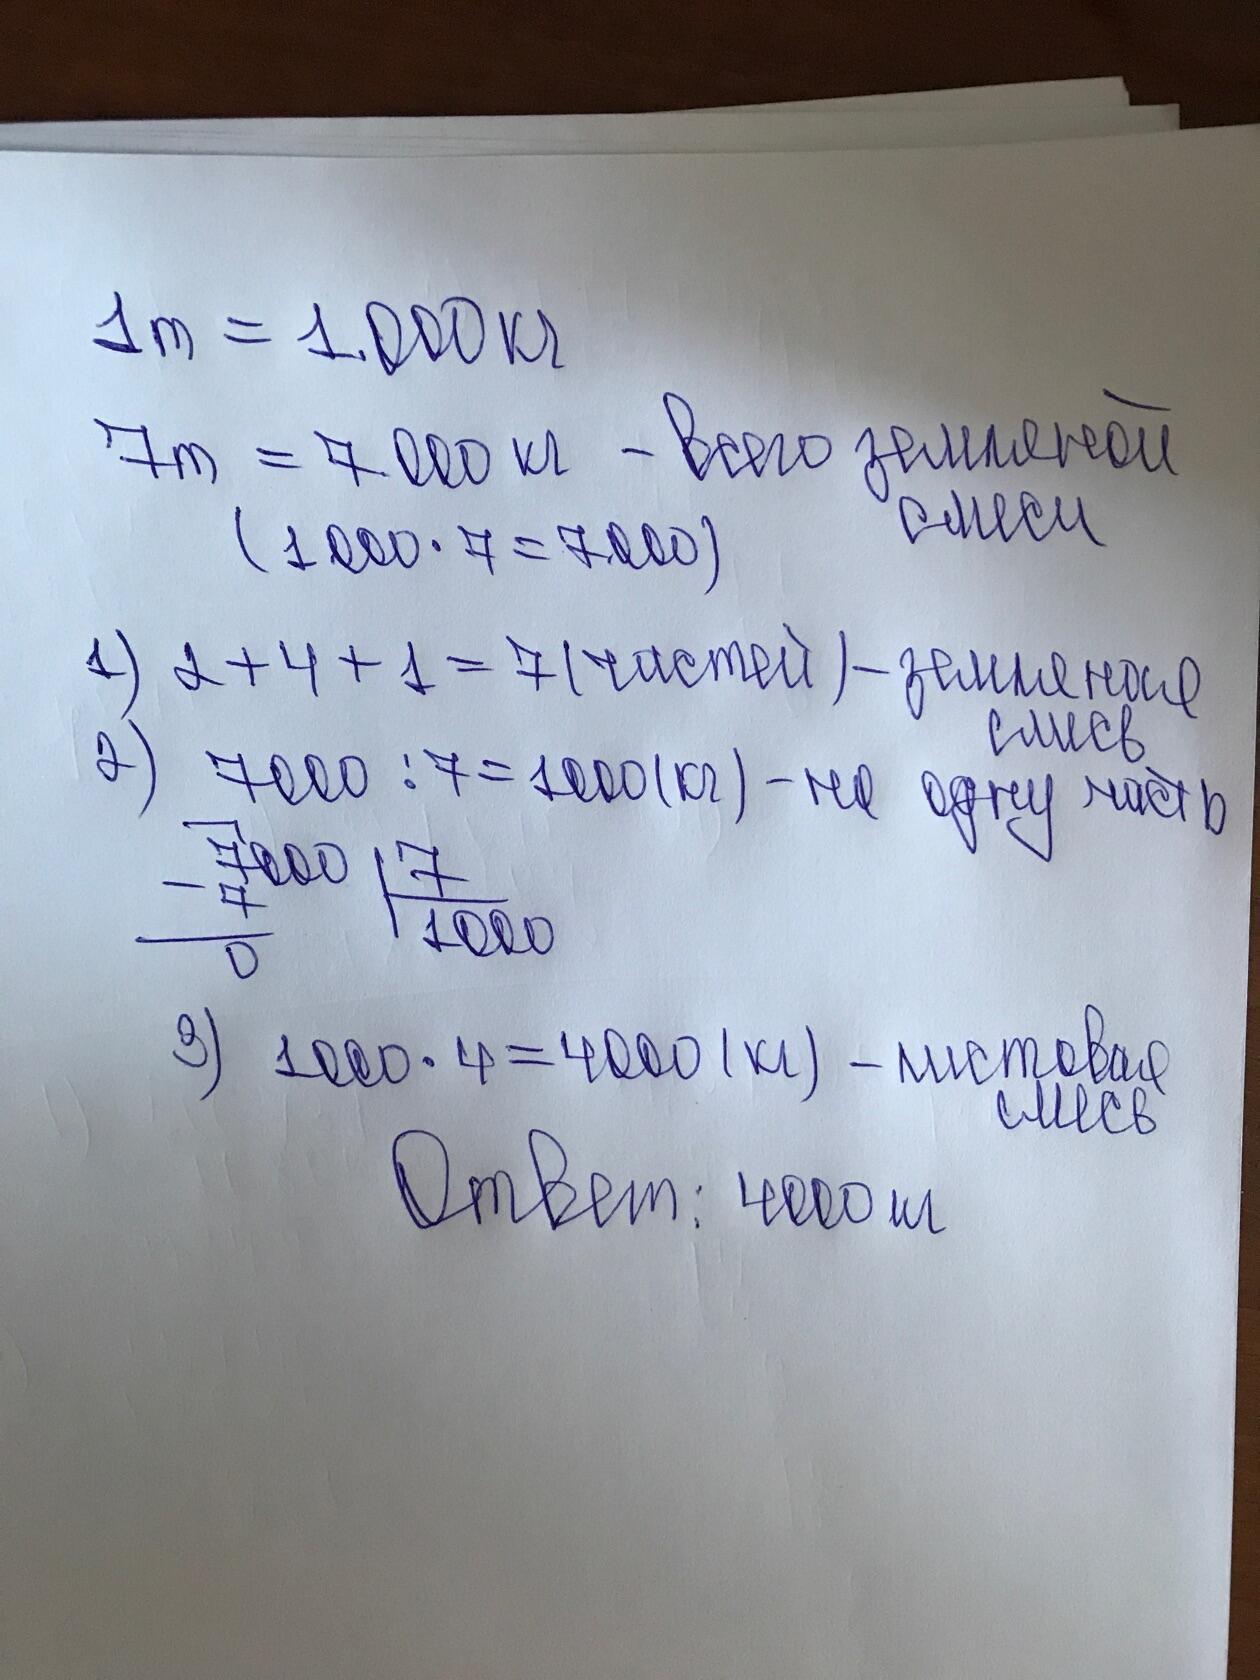 1т = 1.000 кг
7т = 7.000 кг - всего земляной
смеси
(1000 · 7 = 7.000)
1) 2 + 4 + 1 = 7 (частей) - земляная
смесь
2) 7000 : 7 = 1000 (кг) - на одну часть
7000 7
- 7 1000
0
3) 1000 · 4 = 4000 (кг) - листовая
смесь
Ответ: 4000 кг